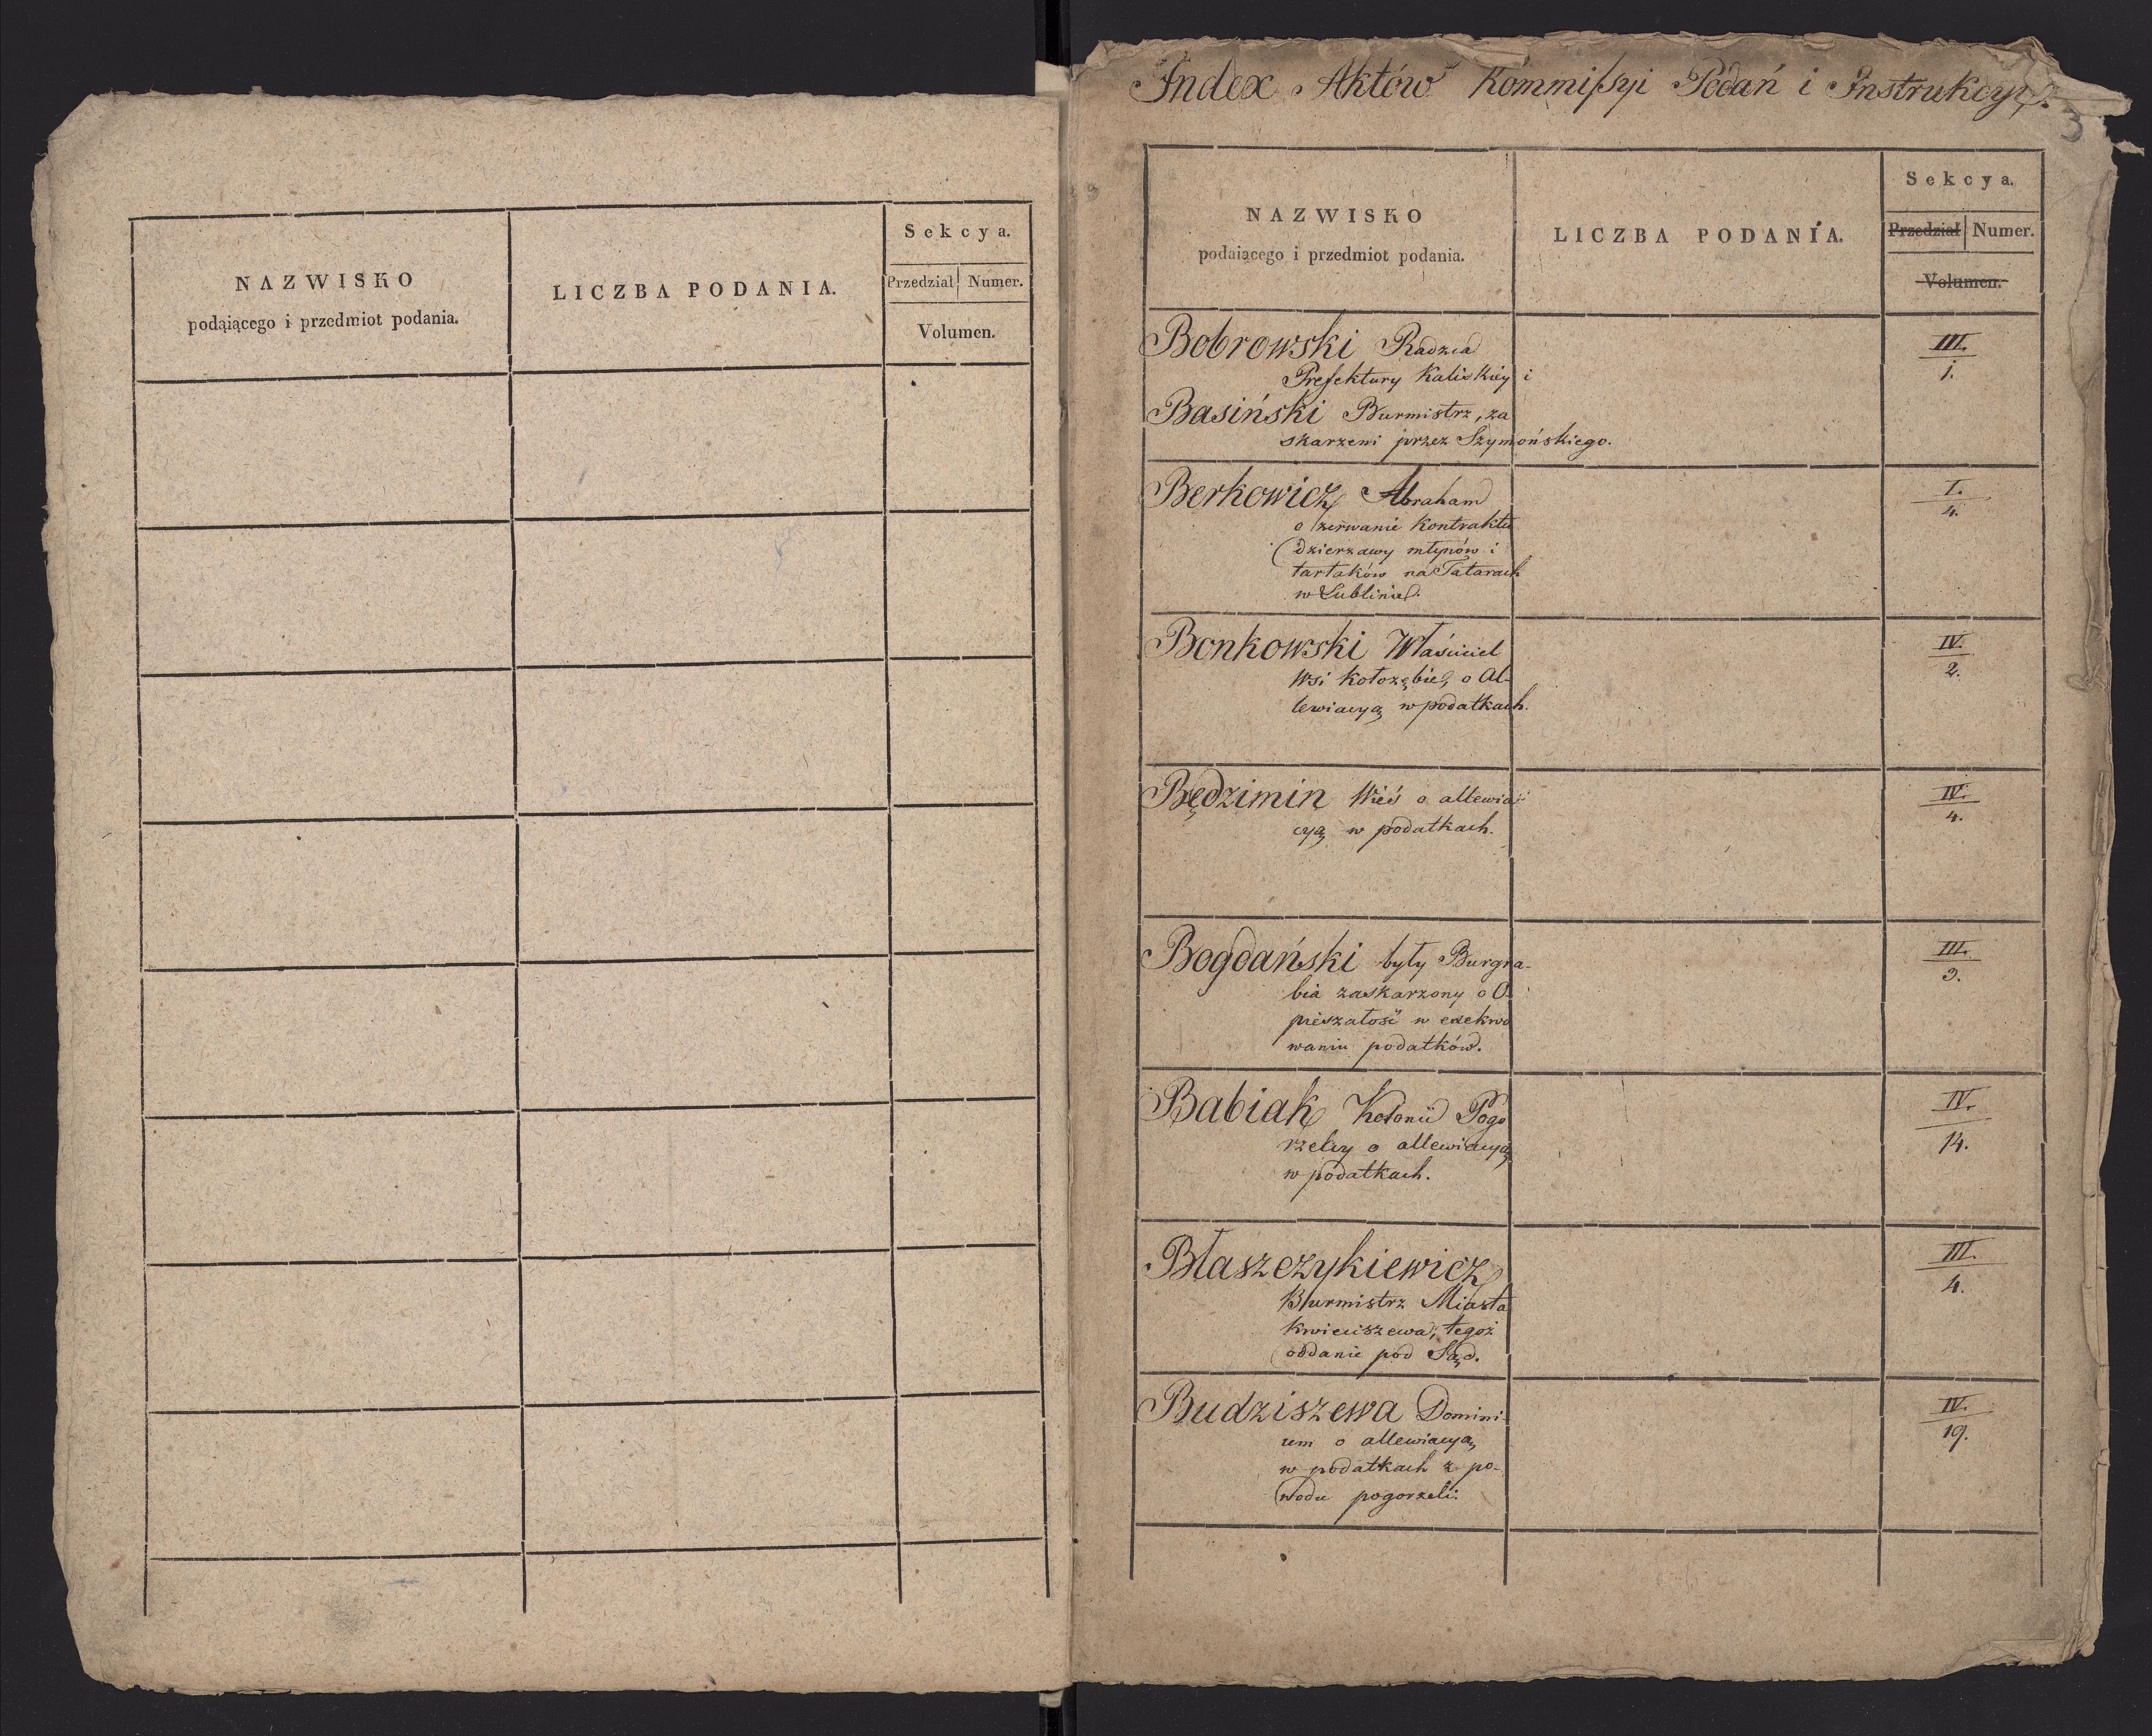 NAZWISKO
podąiącego i przedmiot podania.
LICZBA PODANIA.
Sekcya.
Przedział Numer.
Volumen.
Index Aktów Kommissyi Podań i Instrukcyi.
3
NAZWISKO
podaiącego i przedmiot podania.
LICZBA PODANIA.
Sekcya.
Przedział Numer.
Volumen.
Bobrowski Radzca
Prefektury Kaliskiey i
Basiński Burmistrz, za
skarzeni przez Szymońskiego.
III.
1.
Berkowicz Abraham
o zerwanie Kontraktu
dzierzawy młynów i
tartaków na Tatarach
w Lublinie.
I.
4.
Bonkowski Właściciel
Wsi Kołozębie, o Al-
lewiacyą w podatkach.
IV.
2.
Będzimin Wieś o allewia-
cyą w podatkach.
IV.
4.
Bogdański były Burgra-
bia zaskarzony o O-
pieszałość w exekwo
waniu podatków.
III.
3.
Babiak Kolonii Pogo
rzelcy o allewiacyą
w podatkach.
IV.
14.
Błaszczykiewicz
Burmistrz Miasta
Kwieciszewa, tegoż
oddanie pod Sąd.
III.
4.
Budziszewa Domini-
um o allewiacyą
w podatkach z po-
wodu pogorzeli.
IV.
19.